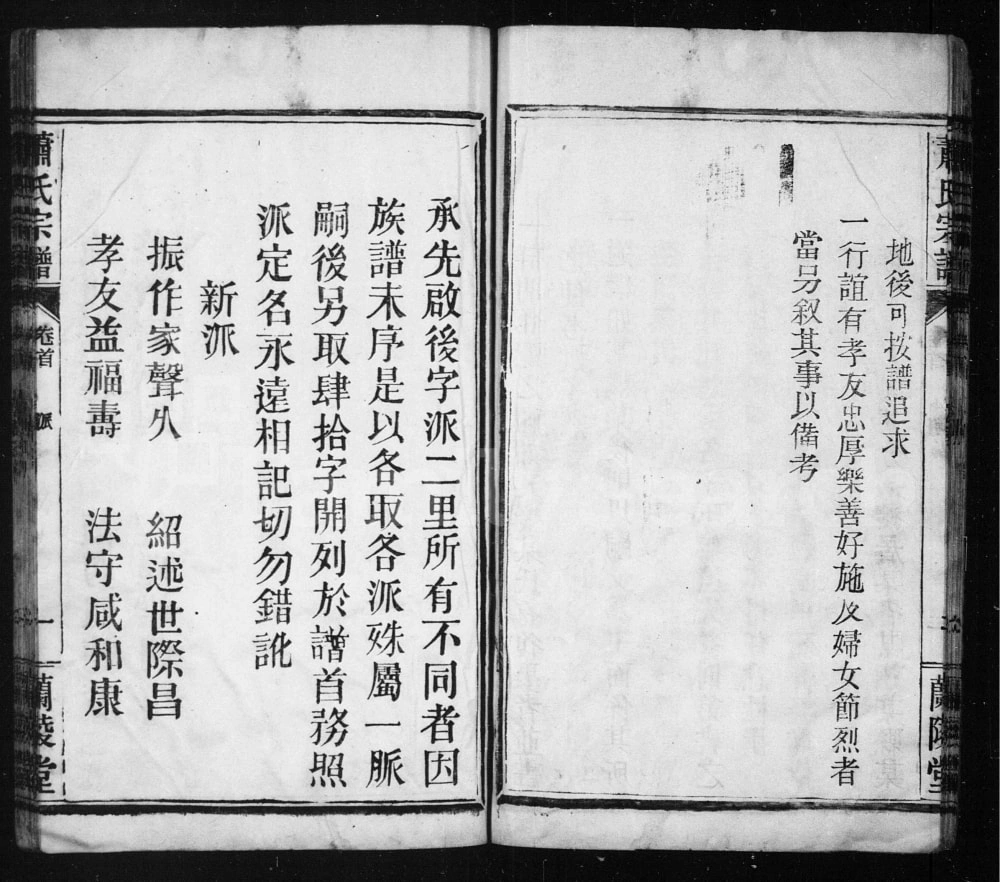 蕭氏宗譜
蘭陵堂
地後可按譜追求
一行誼有孝友忠厚樂善好施及婦女節烈者
當另叙其事以備考
承先啟後字派二里所有不同者因
族譜未序是以各取各派殊屬一脈
嗣後另取肆拾字開列於譜首務照
派定名永遠相記切勿錯訛
新派
振作家聲久 紹述世際昌
孝友益福壽 法守咸和康
蕭氏宗譜
卷首
派
一
蘭陵堂